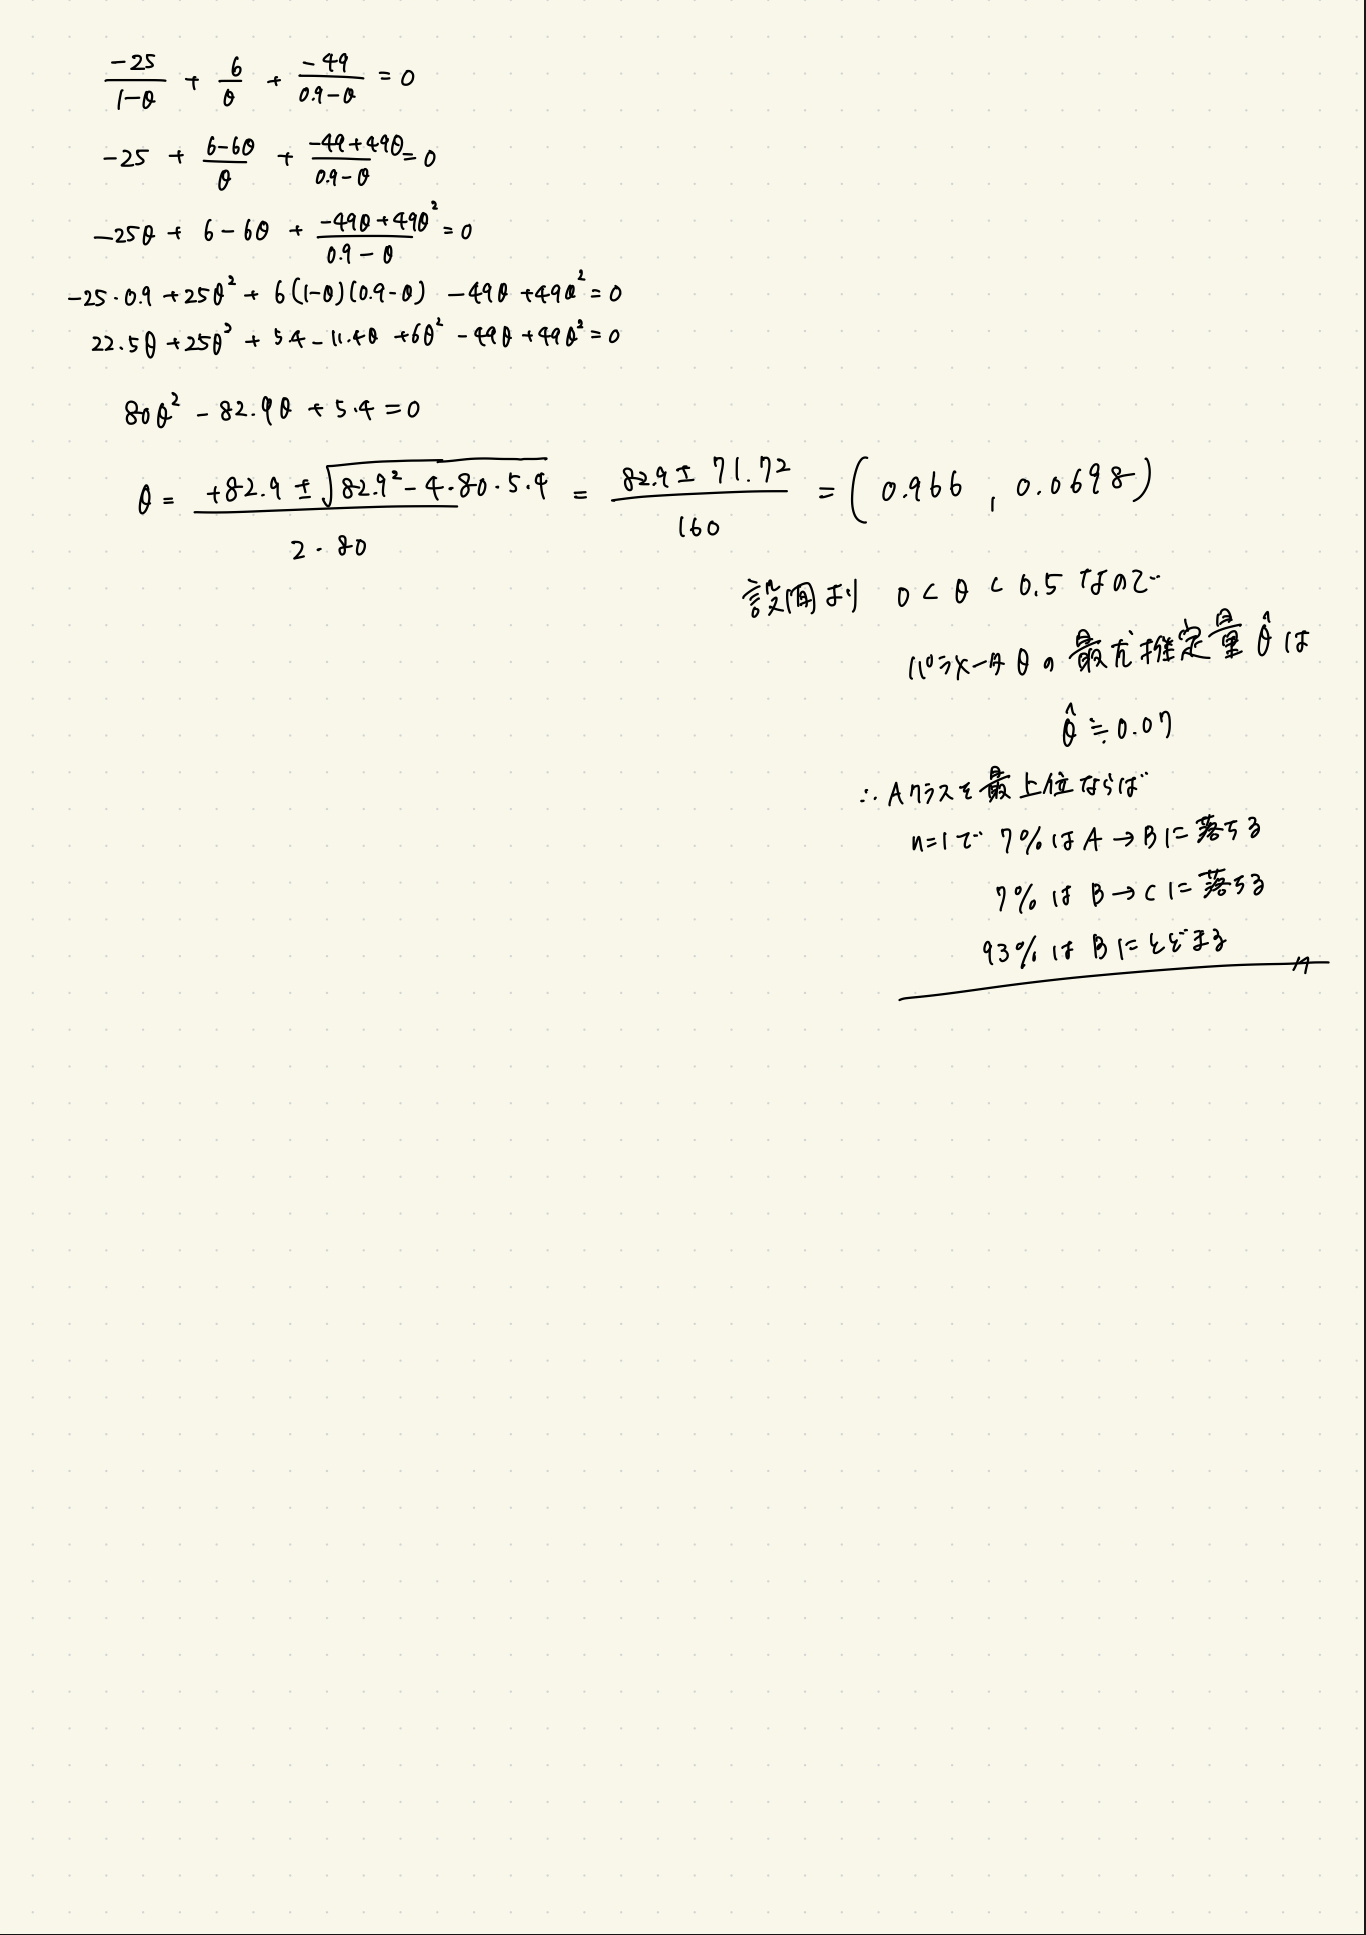 -25/(1-θ) + 6/θ + -49/(0.9-θ) = 0
-25 + (6-6θ)/θ + (-49+49θ)/(0.9-θ) = 0
-25θ + 6-6θ + (-49θ+49θ²)/(0.9-θ) = 0
-25·0.9 +25θ² + 6(1-θ)(0.9-θ) -49θ+49θ² = 0
22.5θ +25θ² + 5.4-11.4θ +6θ² -49θ+49θ² = 0
80θ² - 82.9θ + 5.4 = 0
θ = (+82.9 ± √(82.9²-4·80·5.4))/(2·80) = (82.9 ± 71.72)/160 = (0.966 , 0.0698)
設問より 0 < θ < 0.5 なので
パラメータθの最尤推定量θ̂は
θ̂ ≒ 0.07
∴ Aクラスを最上位ならば
n=1で 7%は A → Bに落ちる
7% は B → C に落ちる
93% は B にとどまる